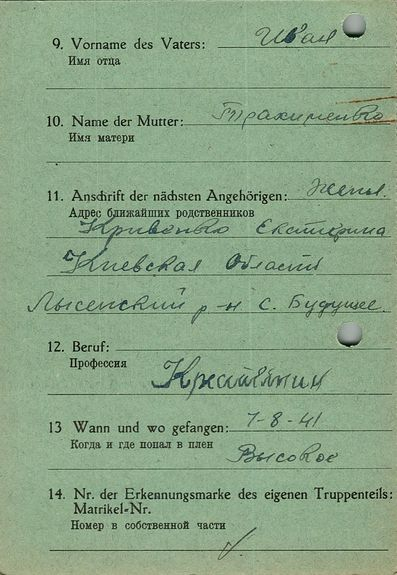 9. Vorname des Vaters: Иван
Имя отца
10. Name der Mutter: Трахименко
Имя матери
11. Anschrift der nächsten Angehörigen: жены.
Адрес ближайших родственников
Кривенко Екатерина
Киевская область
Лысенский р-н с. Будущее.
12. Beruf:
Профессия
Крестьянин
13 Wann und wo gefangen: 7-8-41
Когда и где попал в плен
Высокое
14. Nr. der Erkennungsmarke des eigenen Truppenteils:
Matrikel-Nr.
Номер в собственной части